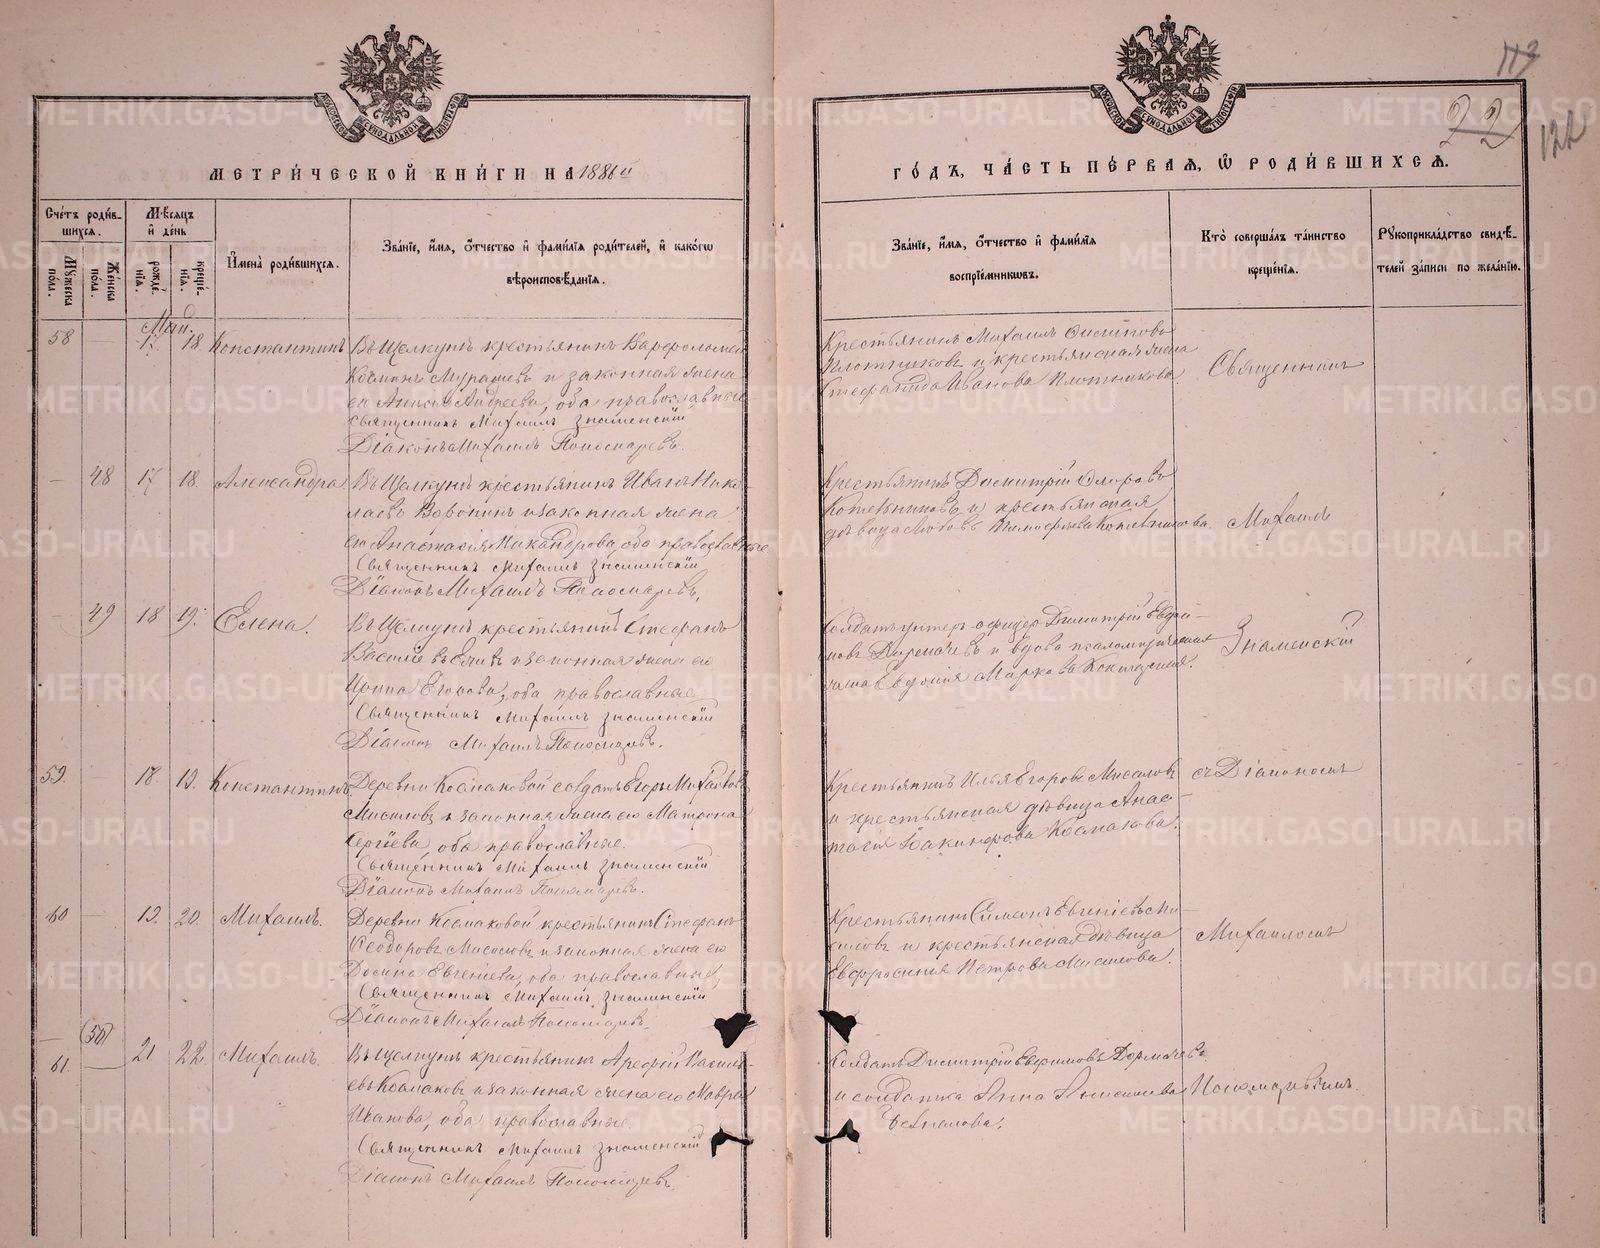 МЕТРИ́ЧЕСКОЙ КНИ́ГИ НА 1886й
ГО́ДЪ, ЧА́СТЬ ПЕ́РВАЯ, Ѡ РОДИ́ВШИХСЯ.
113
22
122
Сче́тъ роди́вшихся.
Му́жеска по́ла.
Же́нска по́ла.
Мѣ́сяцъ и́ де́нь
рожде́нія.
креще́нія.
И҆мена̀ роди́вшихся.
Зва́ніе, и҆́мя, о҆́тчество и҆ фами́лія роди́телей, и҆ како́гѡ
вѣроисповѣ́данія.
Зва́ніе, и҆́мя, о҆́тчество и҆ фами́лія
воспріе́мниковъ.
Кто̀ соверша́лъ та́инство
креще́нія.
Рꙋкоприкла́дство свидѣ́телей за́писи по жела́нію.
Май.
58 — 17. 18. Константинъ
Въ Щелкунѣ крестьянинъ Варфоломей
Космин Мурашев и законная жена
его Андреева, оба православные
Священникъ Михаилъ Знаменскій
Діаконъ Михаилъ Пономаревъ.
Крестьянинъ Михаилъ
Плотниковъ и крестьянская жена
Стефанида Иванова Плотникова.
Священникъ
— 48 17 18. Александра
Въ Щелкунѣ крестьянинъ Иванъ Нико-
лаевъ Воронинъ и законная жена
его Анастасія Никандрова, оба православные
Священникъ Михаилъ Знаменскій
Діаконъ Михаилъ Пономаревъ.
Крестьянинъ Димитрій
Котельниковъ и крестьянская
дѣвица Любовь Котельникова.
Михаилъ
— 49 18 19. Елена.
Въ Щелкунѣ крестьянинъ Стефанъ
Василіевъ и законная жена его
Ирина Егорова, оба православные
Священникъ Михаилъ Знаменскій
Діаконъ Михаилъ Пономаревъ.
Солдатъ унтер-офицеръ Димитрій
и вдова псаломщическая
жена Евдокія Маркова
Знаменскій
59. — 18. 19. Константинъ
Деревни Космаковой солдатъ Егоръ Михайловъ
и законная жена его Матрона
Сергіева, оба православные.
Священникъ Михаилъ Знаменскій
Діаконъ Михаилъ Пономаревъ.
Крестьянинъ Илья Егоровъ
и крестьянская дѣвица Анас-
тасія Космакова.
съ Діакономъ
60 — 19. 20. Михаилъ.
Деревни Космаковой крестьянинъ Стефанъ
Ѳеодоровъ и законная жена его
Евгеніева, оба православные,
Священникъ Михаилъ Знаменскій
Діаконъ Михаилъ Пономаревъ.
Крестьянинъ Симеонъ Евгеніевъ
и крестьянская дѣвица
Евфросинія Петрова
Михаиломъ
— (50)
61. — 21 22. Михаилъ.
Въ Щелкунѣ крестьянинъ Василь-
евъ Космаковъ и законная жена его Мавра
Иванова, оба православные
Священникъ Михаилъ Знаменскій
Діаконъ Михаилъ Пономаревъ.
Солдатъ Димитрій Евфимовъ
и солдатка Анна Анисимова
Пономаревымъ.
METRIKI.GASO-URAL.RU